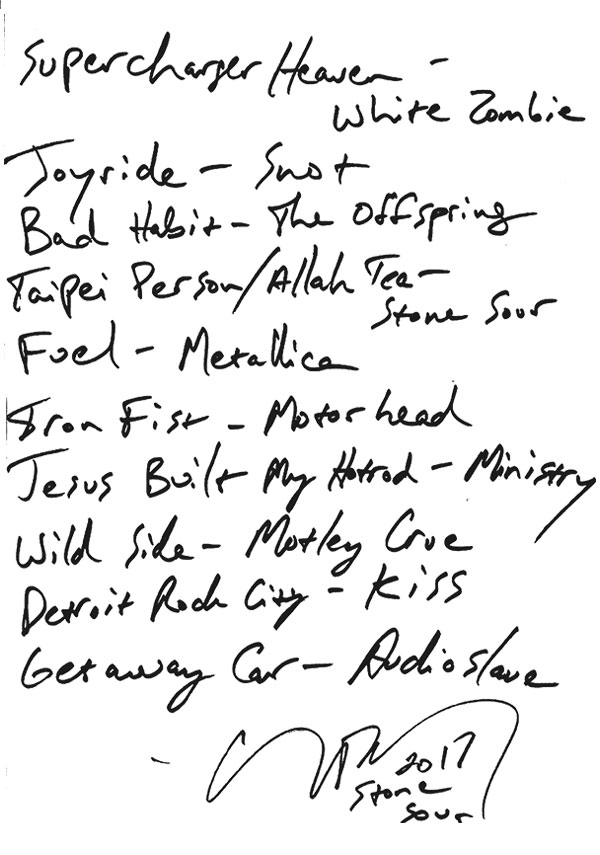 Supercharger Heaven -
White Zombie
Joyride - Snot
Bad Habit - The Offspring
Taipei Person/Allah Tea -
Stone Sour
Fuel - Metallica
Iron Fist - Motorhead
Jesus Built My Hotrod - Ministry
Wild Side - Motley Crue
Detroit Rock City - Kiss
Getaway Car - Audioslave
2017
Stone
Sour